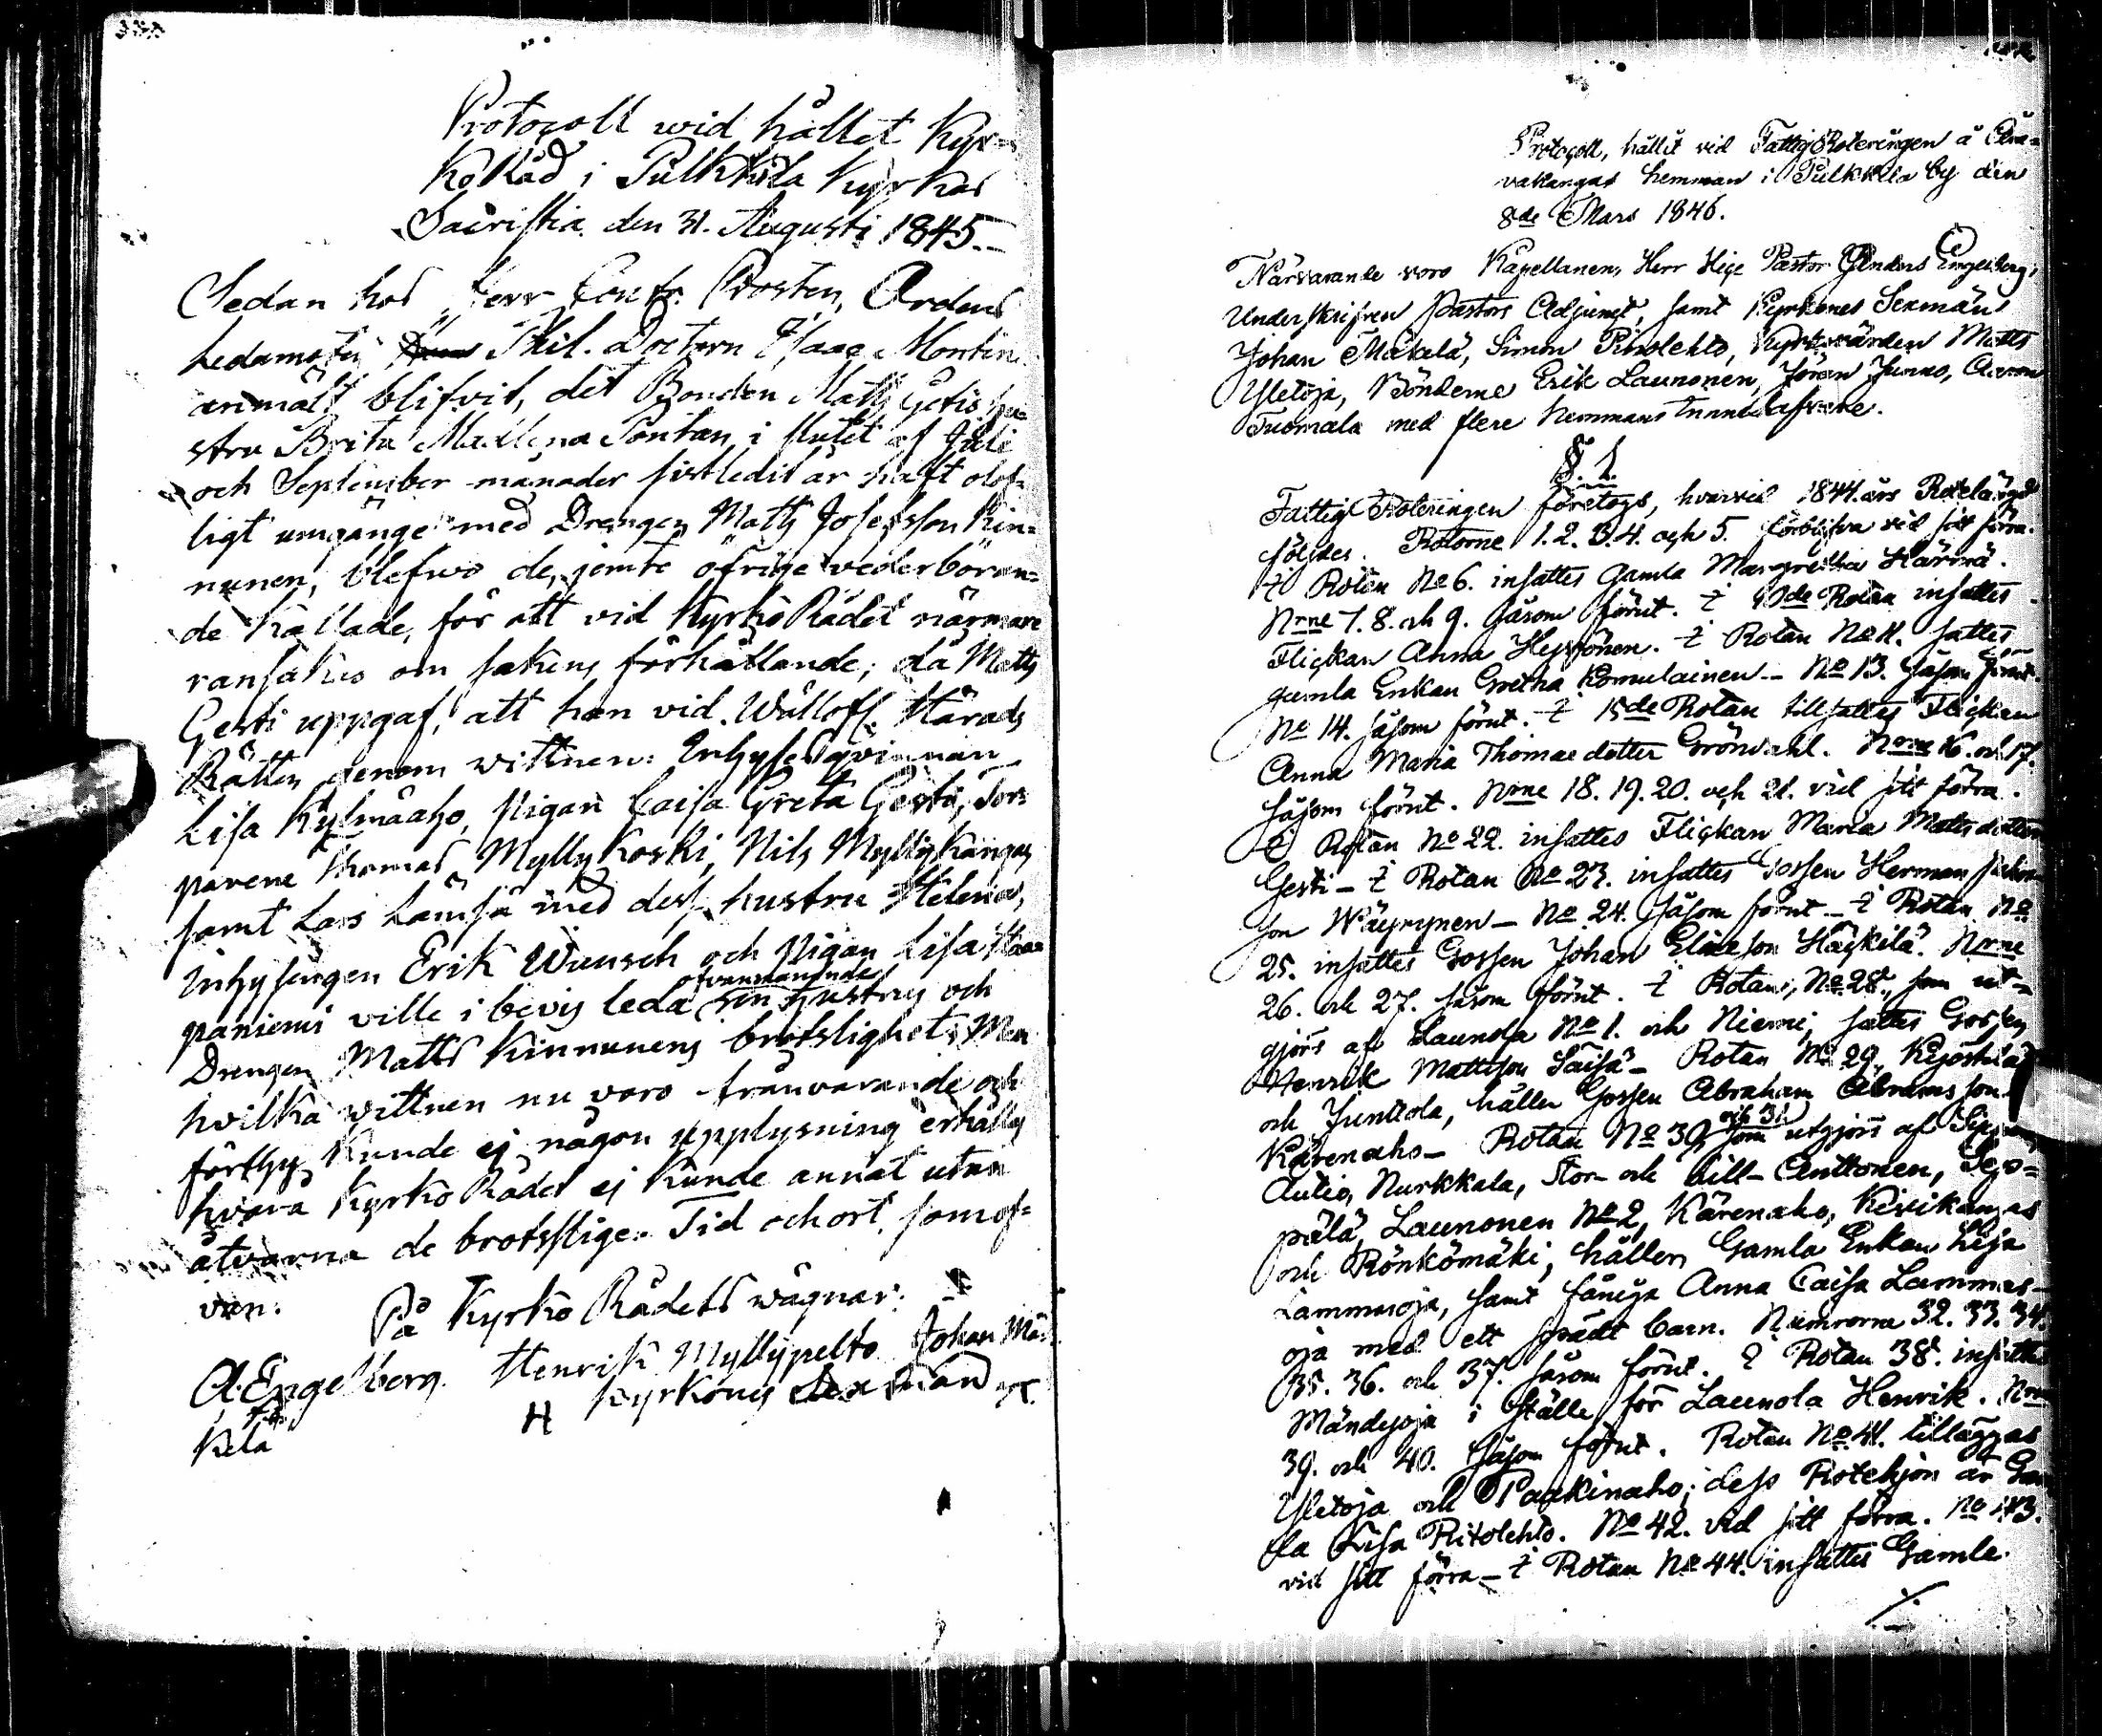 Protocoll wid hållet Kyr=
koRåd i Pulkkila Kyrkas
Sacristia den 31. Augusti 1845.-
Sedan hos Herr Contr. Prosten, Ordens
Ledamoten Phil. Doctorn Isaac Montin
anmält blifvit, det Bonden Matts Gestis hu=
stru Brita Madlena Pontan i slutet af Juli
och September månader sistledit år haft olof=
ligt umgänge med Drengen Matts Josefsson Kin=
nunen, blefwo de, jemte öfrige vederböran=
de kallade, för att vid KyrkoRådet närmare
ransakas om sakens förhållande; då Matts
Gesti uppgaf, att han vid Wällofl. Härads
Rätten genom wittnen: Inhyses qvinnan
Lisa Kylmäaho, Pigan Caisa Greta Gesti, Tor=
parene Thomas Myllykoski, Nils Myllykangas
samt Lars Lämsä med dess hustru Helena,
Inhysingen Erik Wunsch och Pigan Lisa Haa=
paniemi ville i bevis leda ofvannämnde sin hustrus och
Drengen Matts Kinnunens brotslighet; Men
hvilka wittnen nu voro frånvarande och
förthy kunde ej någon upplysning erhållas
hvara KyrkoRådet ej kunde annat utan
åtvarna de brotsslige. Tid och ort, som of=
van.
På Kyrko Rådets wägnar:
A. Engelberg. Henrik Myllypelto Johan Mä=
kelä
H Kyrkones Sexmän
Protocoll, hållit vid FattigRoteringen å
vakangas hemman i Pulkkila by den
8de Mars 1846.
Närvarande voro Kapellanen, Herr Vice Pastor Anders Engelberg,
Underskrifven Pastors Adjunct, samt Kyrkones Sexmän
Johan Mäkelä, Simon Pitolehto, Kyrkovärden Matts
Yletoja, Bönderne Erik Launonen, Jöran Junno, Aaron
Tuomala med flere hemmans innehafvare.
§. 1.
Fattig Roteringen företogs, hvarvid 1844. års Rotelängd
följdes. Rotorne 1. 2. 3. 4. och 5. förblifva vid sitt förra.
I Rotan No 6. insattes Gamla Margretha Härmä.
Nrne 7. 8. och 9. såsom förut. I 10de Rotan insattes
Flickan Anna Heyssönen. I Rotan No 11. sattes
gamla Enkan Gretha Komulainen.- No 13. såsom förut.
No 14. såsom förut. I 15de Rotan tillsattes Flickan
Anna Maria Thomae dotter Gröndahl. Nrne 16. och 17.
såsom förut. Nrne 18. 19. 20. och 21. vid sitt förra.
I Rotan No 22. insattes Flickan Maria Matts dotter
Gesti - I Rotan No 23. insattes Gossen Herman
son Wäyrynen - No 24. såsom förut - I Rotan No
25. insattes Gossen Johan Eliaeson Häykilä. Nrne
26. och 27. såsom förut. I Rotan, No 28., som ut=
gjörs af Launola No 1. och Niemi, sattes Gossen
Henrik Mattsson Säisä - Rotan No 29, Kejoskela
och Junttola, håller Gossen Abraham Abrams son
Kärenaho - Rotan No 30, och 31. som utgjörs af
Autio, Nurkkala, Stor- och Lill- Anttonen, Sep=
pälä, Launonen No 2, Kärenaho, Kivikangas
och Rönkömäki, håller Gamla Enkan Lisa
Lammasoja, samt fånga Anna Caisa Lammas=
oja med ett spädt barn. Numrorna 32. 33. 34.
35. 36. och 37. såsom förut. I Rotan 38. insattes
Mändyoja i ställe för Launola Henrik. Nrne
39. och 40. såsom förut. Rotan No 41. tillägges
Yletoja och Paakinaho; dess Rotehjon är Gam
la Lisa Pitolehto. No 42. vid sitt förra. No 43.
vid sitt förra - I Rotan No 44. insattes Gamle